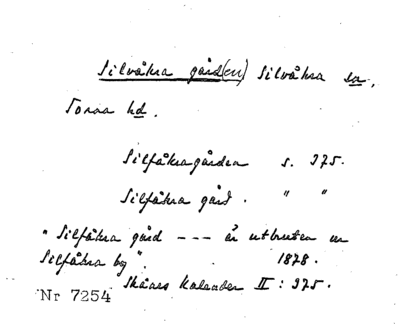 Silvåkra gård(en) Silvåkra sn,
Torna hd.
Silfåkragården s. 375.
Silfåkra gård. " "
"Silfåkra gård --- är utbruten ur
Silfåkra by". 1878.
Skånes Kalender II: 375.
Nr 7254